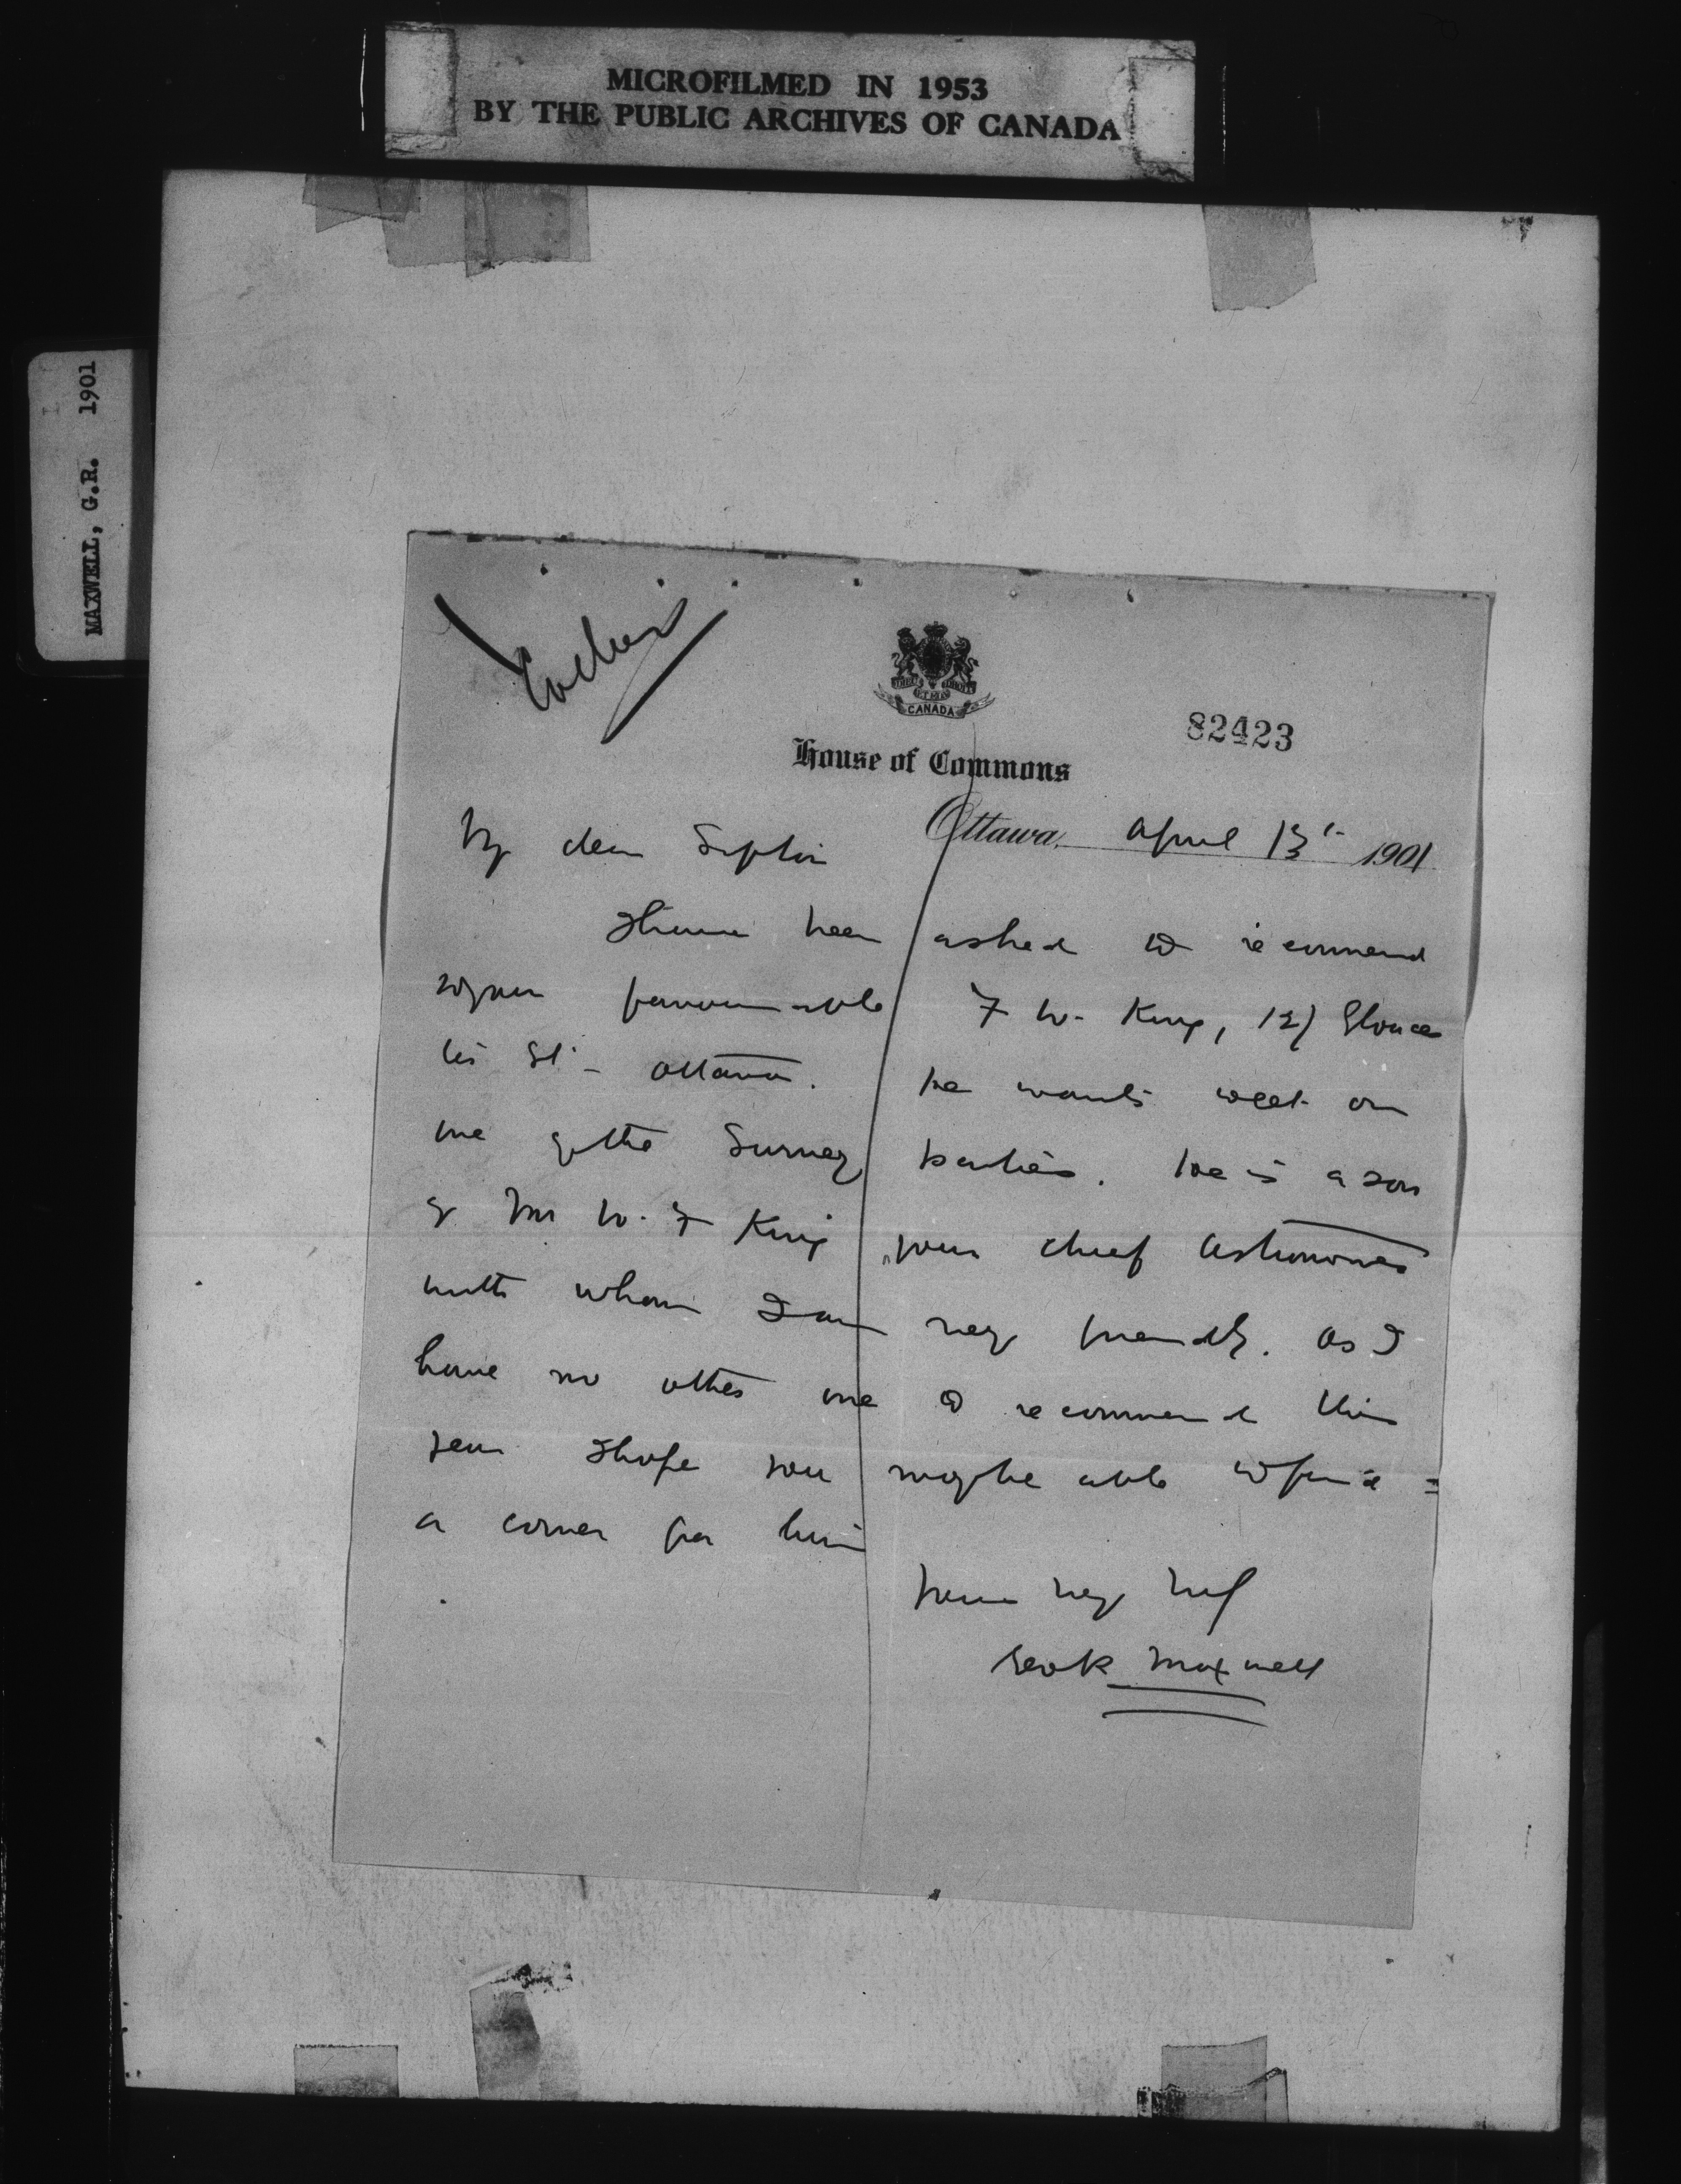 MICROFILMED IN 1953
BY THE PUBLIC ARCHIVES OF CANADA
MAXWELL, G.R. 1901
CANADA
82423
House of Commons
Ottawa, April 13th 1901
My dear Sifton
I have been asked to recommend
to your favourable F W. King, 127 Glouces
ter St. Ottawa. He wants west on
one of the Survey parties. He is a son
of Mr W. F King your chief Astronomer
with whom I am very friendly. As I
have no other one to recommend this
year I hope you may be able to find
a corner for him
Yours very truly
Geo R Maxwell